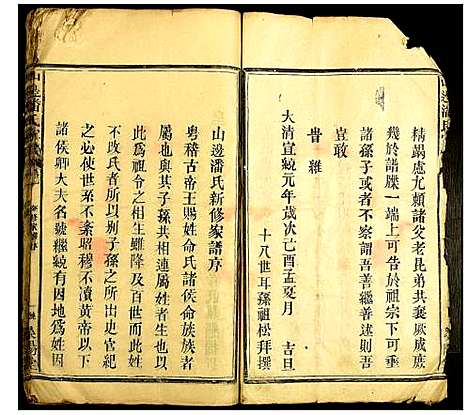 精竭處尤賴諸父老昆弟共襄厥成庶
幾於譜牒一端上可告於祖宗下可垂
諸孫子或者不察謂吾善繼善述則吾
豈敢
旹維
大清宣統元年歲次己酉孟夏月 吉旦
十八世年孫祖松拜撰
山邊潘氏新修家譜序
粵稽古帝王賜姓命氏諸侯命族族者
屬也與其子孫共相連屬姓者生也以
此為祖令之相生雖降及百世而此姓
不改氏者以別子孫之所出史官紀
之必使世系不紊昭穆不瀆黃帝以下
諸侯卿大夫名號繼統有因地為姓因
山邊潘氏